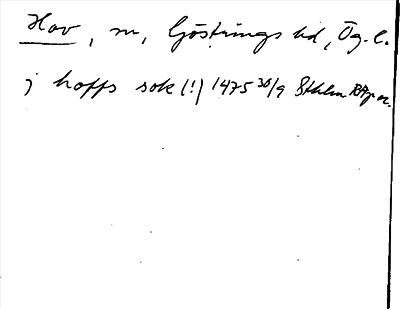 Hov, sn, Göstrings hd, Ög. l.
j hoffs sok (!) 1475 30/9 Sthlm RAp or.